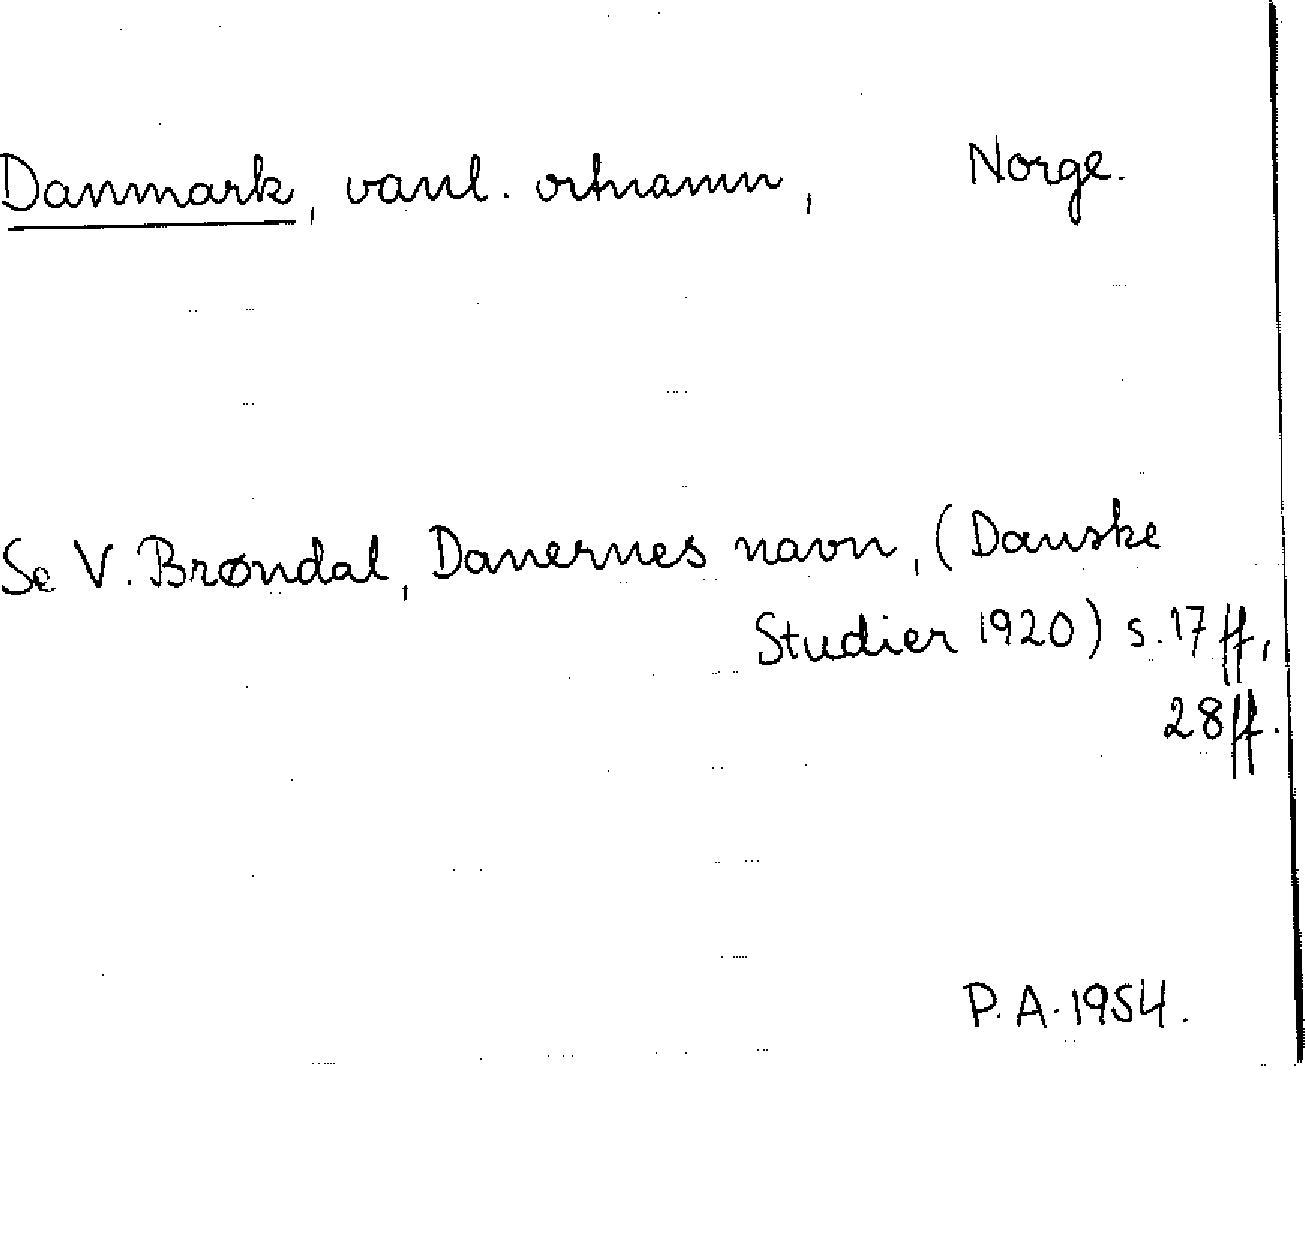 Danmark, vanl. ortnamn, Norge.
Se V. Brøndal, Danernes navn, (Danske
Studier 1920) s. 17 ff,
28 ff.
P. A. 1954.